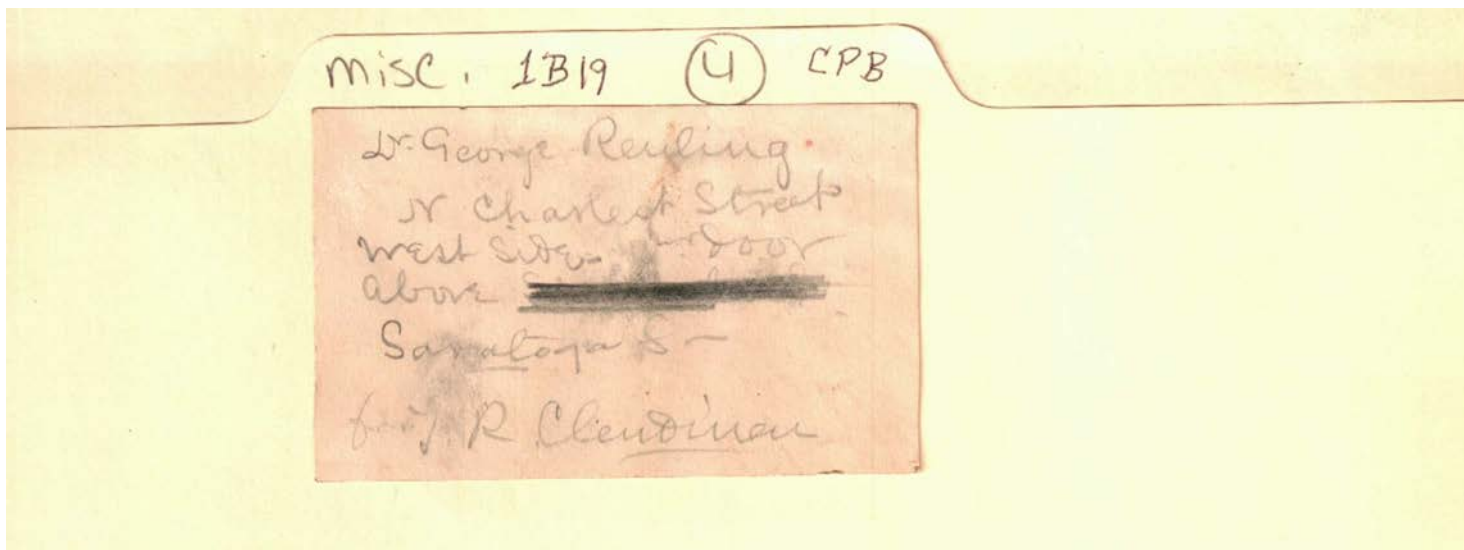 Misc. 1B19 4 CPB
Dr. George Reuling.
N Charles St Street
West Side door
above
Saratoga S
J. R. Clendinen